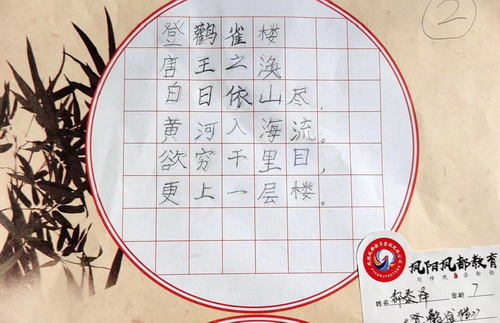 ②
登鹳雀楼
唐王之涣
白日依山尽,
黄河入海流。
欲穷千里目,
更上一层楼。
凤阳凤都教育
姓名 郝泰泽 年龄 7
《登鹳雀楼》